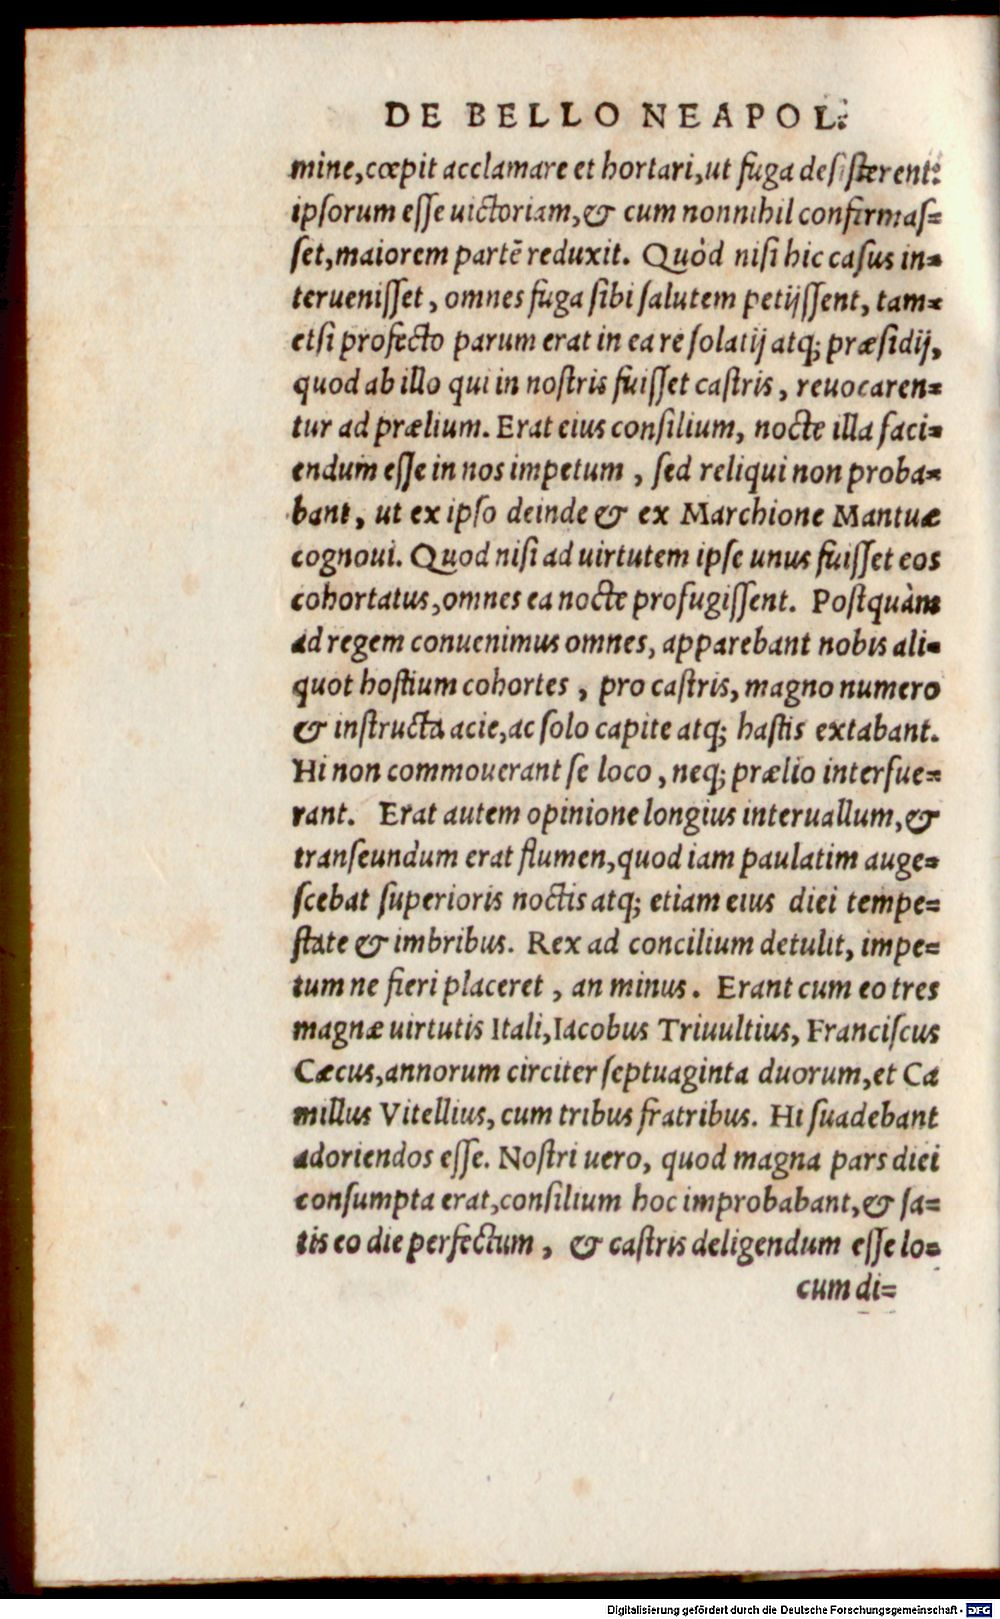 DE BELLO NEAPOL:
mine, cœpit acclamare et hortari, ut fuga desisterent:
ipsorum esse uictoriam, & cum nonnihil confirmas=
set, maiorem partē reduxit. Quòd nisi hic casus in=
teruenisset, omnes fuga sibi salutem petijssent, tam=
etsi profecto parum erat in ea re solatij atq; præsidij,
quod ab illo qui in nostris fuisset castris, reuocaren=
tur ad prælium. Erat eius consilium, nocte illa faci=
endum esse in nos impetum, sed reliqui non proba=
bant, ut ex ipso deinde & ex Marchione Mantuæ
cognoui. Quod nisi ad uirtutem ipse unus fuisset eos
cohortatus, omnes ea nocte profugissent. Postquàm
ad regem conuenimus omnes, apparebant nobis ali=
quot hostium cohortes, pro castris, magno numero
& instructa acie, ac solo capite atq; hastis extabant.
Hi non commouerant se loco, neq; prælio interfue=
rant. Erat autem opinione longius interuallum, &
transeundum erat flumen, quod iam paulatim auge=
scebat superioris noctis atq; etiam eius diei tempe=
state & imbribus. Rex ad concilium detulit, impe=
tum ne fieri placeret, an minus. Erant cum eo tres
magnæ uirtutis Itali, Iacobus Triuultius, Franciscus
Cæcus, annorum circiter septuaginta duorum, et Ca
millus Vitellius, cum tribus fratribus. Hi suadebant
adoriendos esse. Nostri uero, quod magna pars diei
consumpta erat, consilium hoc improbabant, & sa=
tis eo die perfectum, & castris deligendum esse lo=
cum di=
Digitalisierung gefördert durch die Deutsche Forschungsgemeinschaft - DFG